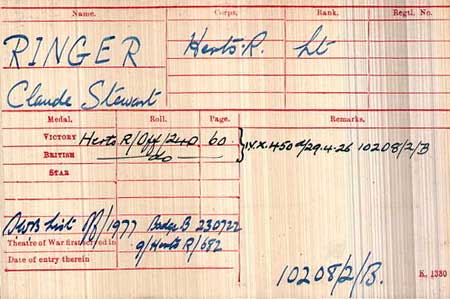 Name. Corps. Rank. Regtl. No.
RINGER Herts. R. Lt
Claude Stewart
Medal. Roll. Page. Remarks.
VICTORY Herts R/Off/240 60. IV.X.450 d/29.4.26 10208/2/B
BRITISH do
STAR
SWB List Off/1977 Badge B 230722
Theatre of War first served in 9/Herts R/682
Date of entry therein
10208/2/B.
K. 1380